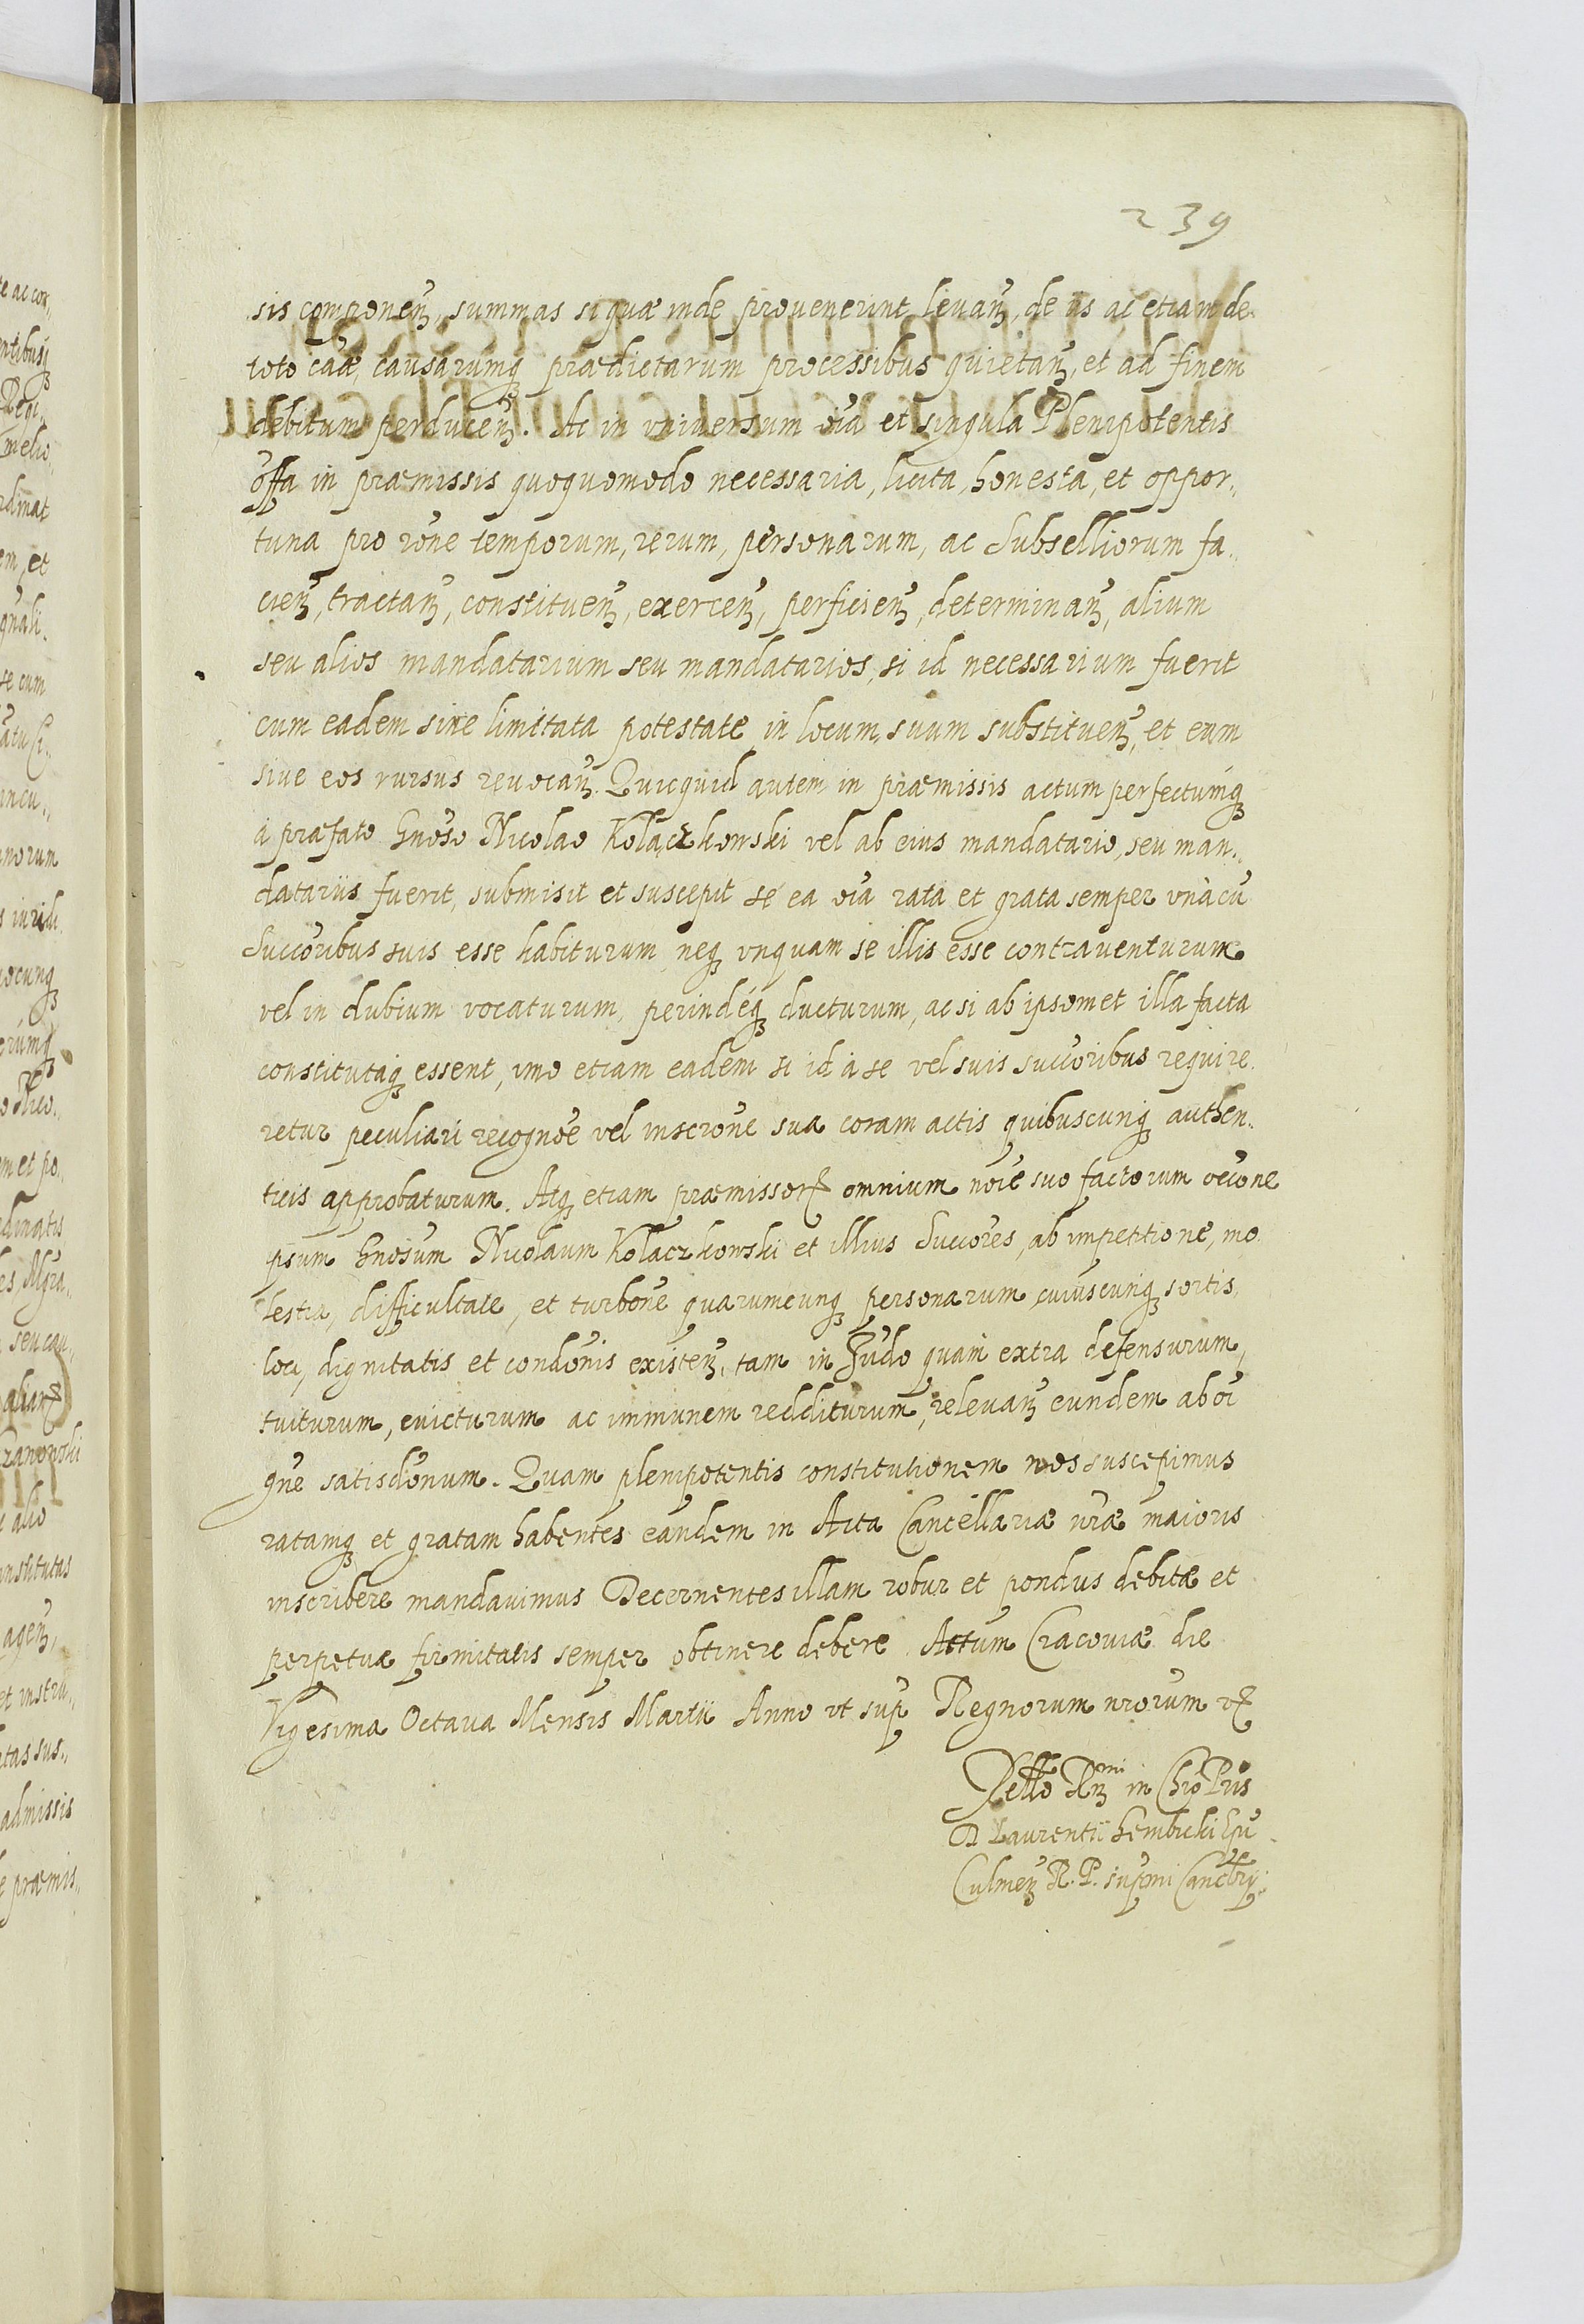 239
sis componeñ, summas si quæ inde provenerint levañ, de iis ac etiam de
toto cãæ, causarumq̃ prædictarum processibus quietañ, et ad finem
debitum perduceñ. Ac in vniversum oĩa et singula Plenipotentis
offa in præmissis quoquomodo necessaria, licita, honesta, et oppor„
tuna pro rõne temporum, rerum, personarum, ac Subselliorum fa„
cieñ, tractañ, constitueñ, exerceñ, perficieñ, determinañ, alium
seu alios mandatarium seu mandatarios, si id necessarium fuerit
cum eadem sive limitata potestate in locum suum substitueñ, et eum
sive eos rursus revocañ. Quicquid autem in præmissis actum perfectumq̃
à præfato Gnoso Nicolao Kołaczkowski vel ab eius mandatario, seu man„
datariis fuerit, submisit et suscepit sé ea oĩa rata et grata semper vnà cũ
Succoribus suis esse habiturum neq̃ vnquam se illis esse contrauenturum
vel in dubium vocaturum, perindéq̃ ducturum, ac si ab ipsomet illa facta
constitutaq̃ essent, imo etiam eadem si id à se vel suis succoribus require
retur peculiari recognõe vel inscrõne sua coram actis quibuscunq̃ authen„
ticis approbaturum. Atq̃ etiam præmissor̃ omnium noĩe suo factorum occõne
ipsum Gnosum Nicolaum Kołaczkowski et illius Succores, ab impetitione, mo
lestia, difficultate, et turbõne quarumcunq̃ personarum cuiuscunq̃ sortis,
loci, dignitatis et condõnis existeñ, tam in Iudo quam extra defensurum,
tuiturum, evicturum ac immunem redditurum, relevañ eundem ab oĩ
gñe satisdõnum. Quam plenipotentis constitutionem nos suscepimus
ratamq̃ et gratam habentes eandem in Acta Cancellariæ nræ maioris
inscribere mandavimus Decernentes illam robur et pondus debitæ et
perpetuæ firmitatis semper obtinere debere. Actum Cracoviæ die
Vigesima Octava Mensis Martii Anno vt sup Regnorum nrorum
Rello Rñmi in Chro Pris
D Laurentii Gembicki Epi
Culmeñ R. P. supmi Cancellrii